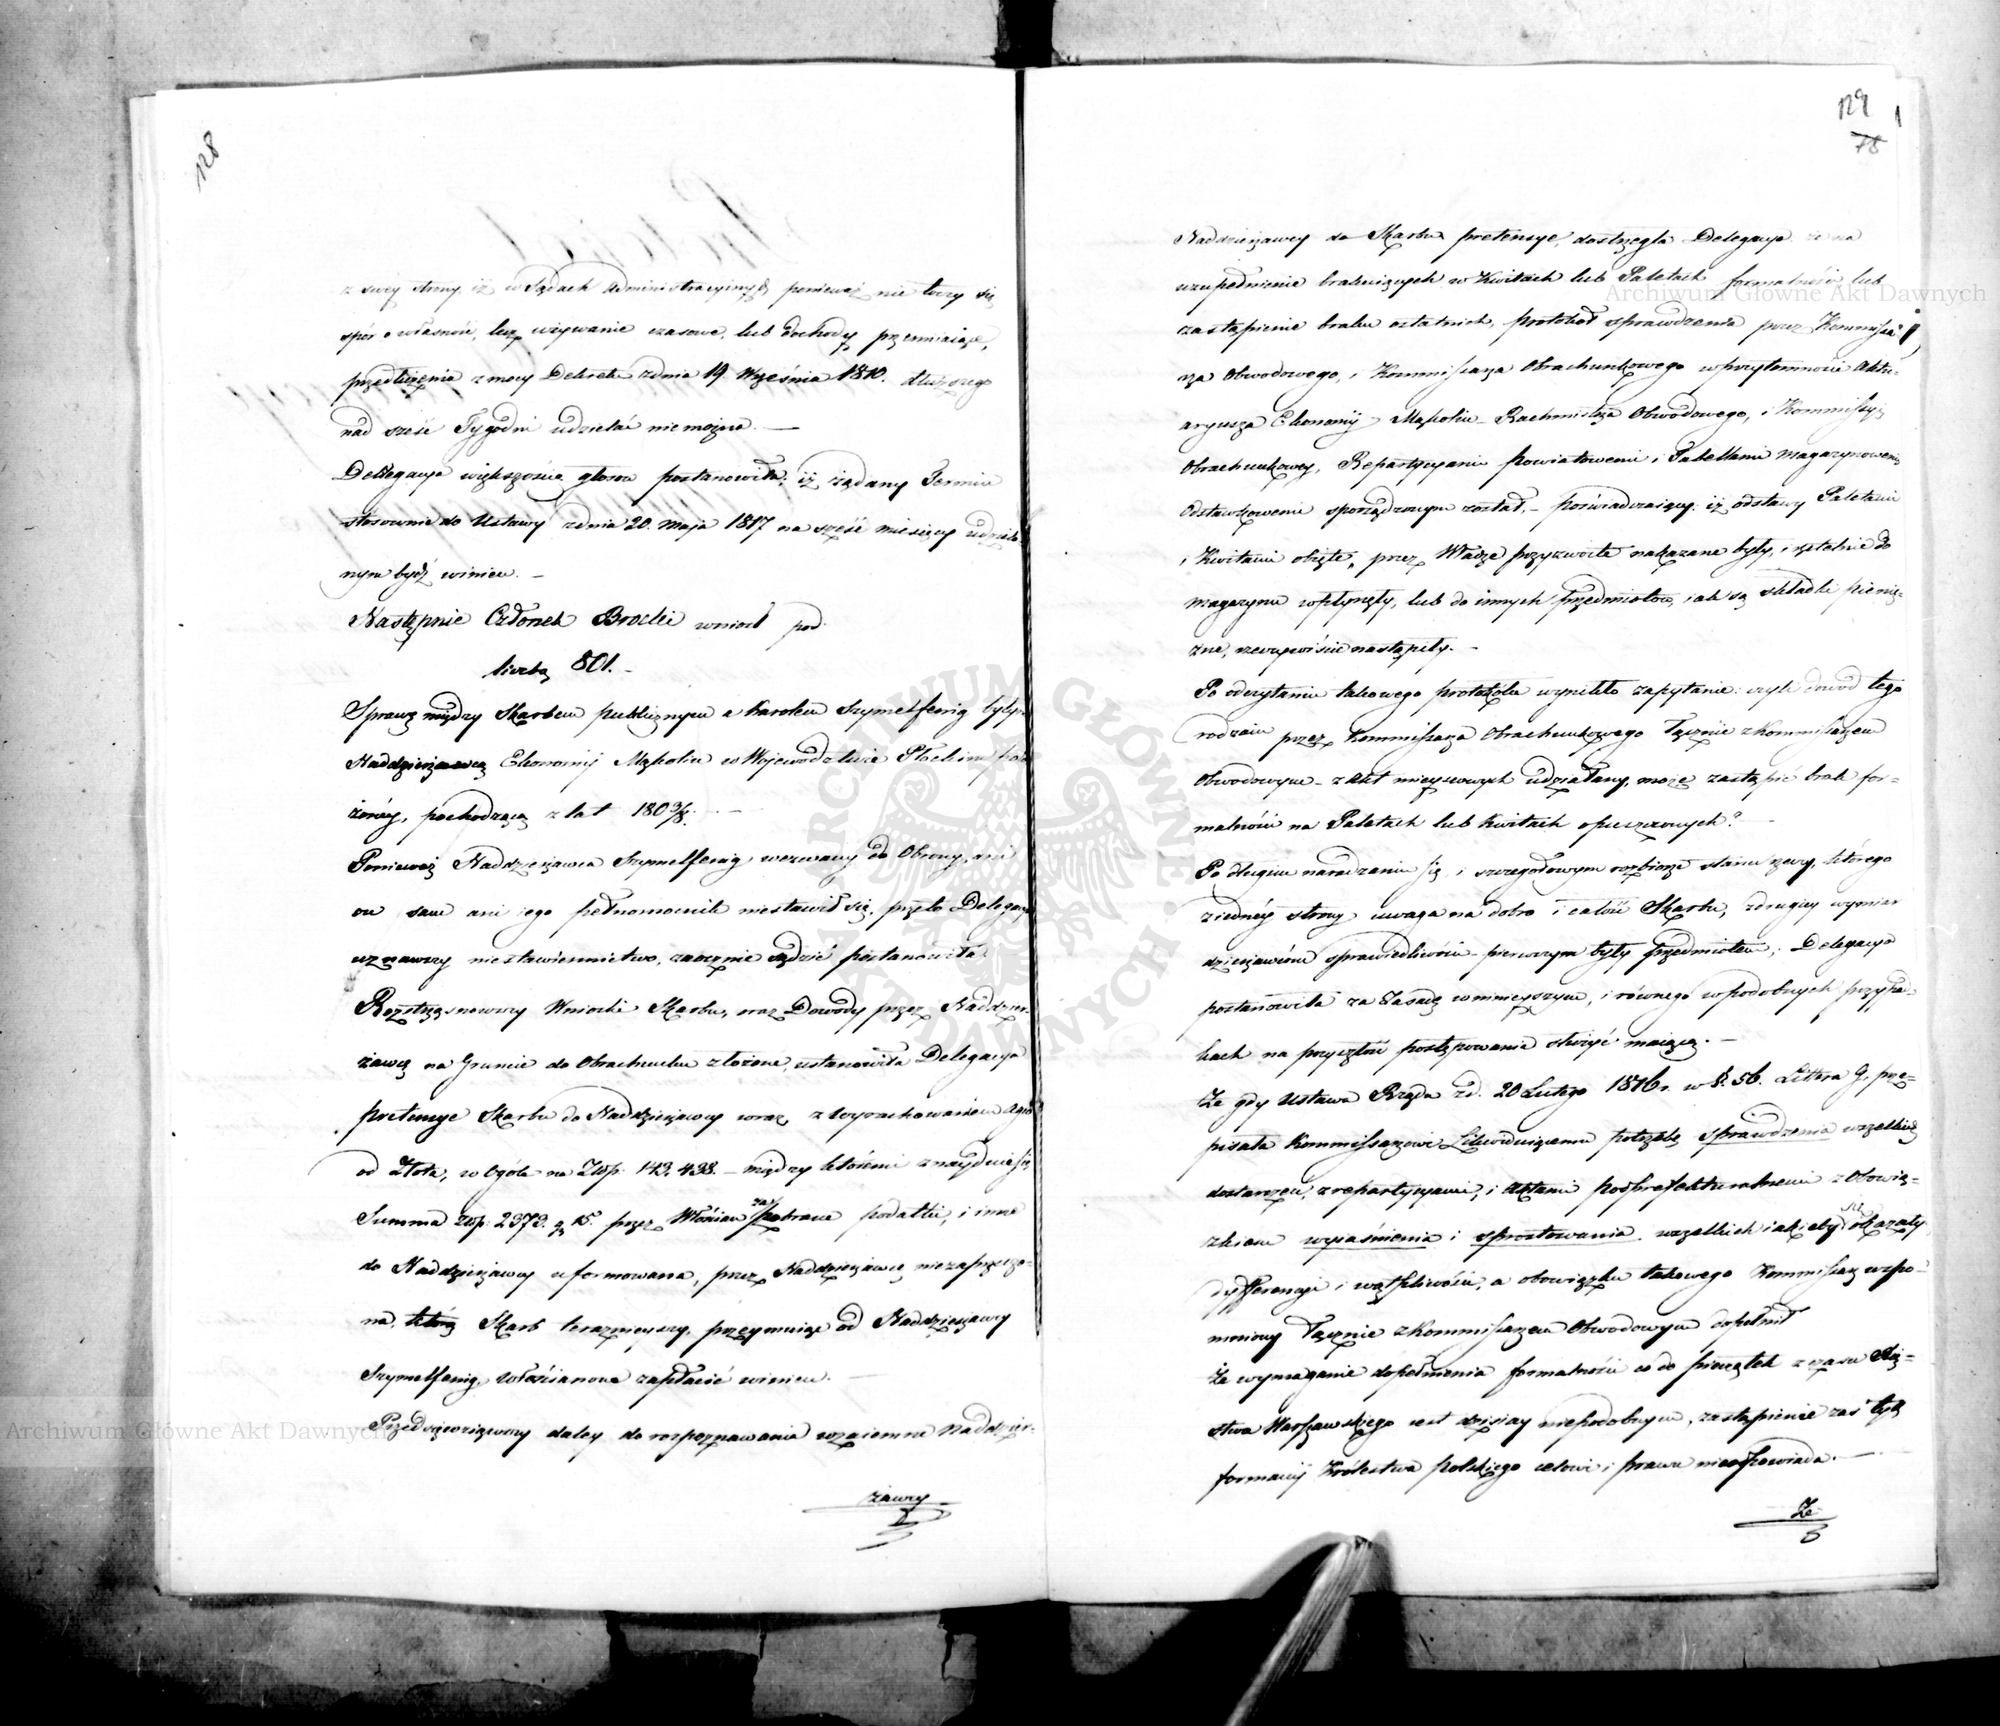 128
z swey strony, iż w Sądach Administracyinych ponieważ nie toczy się
spór o własność, lecz używanie czasowe, lub dochody przemiiaiące,
przedłużenia z mocy Dekretu z dnia 19 Września 1810. dłuższego
nad sześć Tygodni udzielać nie można. —
Delegacya większością głosów postanowiła, iż żądany Termin
stosownie do Ustawy z dnia 20. Maja 1817 na sześć miesięcy udzielo-
nym bydź winien. —
Następnie Członek Brocki wniosł pod
liczbą 801. —
Sprawę między Skarbem publicznym a Karolem Szymelfenig byłym
Naddzierżawcą Ekonomij Mąkolin w Wojewodztwie Płockim poło-
żonéy, pochodzącą z lat 180⅜. —
Ponieważ Naddzierżawca Szymelfenig wezwany do Obrony, ani
on sam ani iego pełnomocnik niestawił się, przeto Delegacya
uznawszy niestawiennictwo, zaocznie sądzić postanowiła.
Roztrząsnąwszy Wnioski Skarbu, oraz Dowody przez Naddzier-
żawcę na Gruncie do Obrachunku złożone, ustanowiła Delegacya
pretensye Skarbu do Naddzierżawcy wraz z wyrachowaniem agio
od Złota, w Ogóle na Złp. 143,438. — między któremi znayduie się
Summa złp. 2373. g. 15. przez Włościan za pobrane podatki, i inne
do Naddzierżawcy uformowana, przez Naddzierżawcę niezaprzeczo-
na, którą Skarb terazniejszy, przeymuiąc od Naddzierżawcy
Szymelfenig, włościanom zapłacić winien. —
Przedsięwziąwszy daley do rozpoznawania wzaiemne Naddzier-
żawcy
129
78
Naddzierżawcy do Skarbu pretensye, dostrzegła Delegacya że na
uzupełnienie brakuiących w Kwitach lub Paletach formalności lub
zastąpienie braku ostatnich, protokół sprawdzenia przez Kommissa-
rza Obwodowego, i Kommissarza Obrachunkowego w przytomności Aktu-
aryusza Ekonomij Mąkolin — Rachmistrza Obwodowego, i Kommissyi
Obrachunkowey, Repartycyami powiatowemi i Tabellami magazynowemi
Odstawkowemi sporządzonym został, — poświadczaiący: iż odstawy Paletami
i Kwitami obięte, przez Władze przyzwoite nakazane były, i rzetelnie do
magazynu wpłynęły, lub do innych przedmiotów, iak są składki pienię-
żne, rzeczywiście nastąpiły. —
Po odczytaniu takowego protokółu wynikło zapytanie: czyli dowod tego
rodzaiu przez Kommissarza Obrachunkowego łącznie z Kommissarzem
Obwodowym — z Akt mieyscowych udziałany, może zastąpić brak for-
malności na Paletach lub kwitach opuszczonych? —
Po długim naradzaniu się, i szczegółowym rozbiorze stanu rzeczy, którego
z iednéy strony uwaga na dobro i całość Skarbu, z drugiey wymiar
dzierżawcom sprawiedliwości — pierwszym były przedmiotem; Delegacya
postanowiła za Zasadę w ninieyszym, i równego w podobnych przypad-
kach na przyszłość postępowania służyć maiącą. —
Że gdy Ustawa Rządu z d. 20 Lutego 1816 r. w §. 56. Littera G, prze-
pisała Kommissarzowi Likwiduiącemu potrzebę sprawdzenia wszelkich
dostarczeń, z repartycyami, i Aktami podprefekturalnemi z Obowią-
zkiem wyiaśnienia i sprostowania wszelkich iakieby się okazały
dyfferencye i wątpliwości, a obowiązku takowego Kommissarz wspo-
mniony łącznie z Kommissarzem Obwodowym dopełnił
Że wymaganie dopełnienia formalności co do pieczątek z czasu Xię-
stwa Warszawskiego iest dzisiay niepodobnym, zastąpienie zaś tych
formami Królestwa polskiego celowi i prawu nieodpowiada. —
Że
Archiwum Główne Akt Dawnych
Archiwum Główne Akt Dawnych
ARCHIWUM GŁÓWNE AKT DAWNYCH